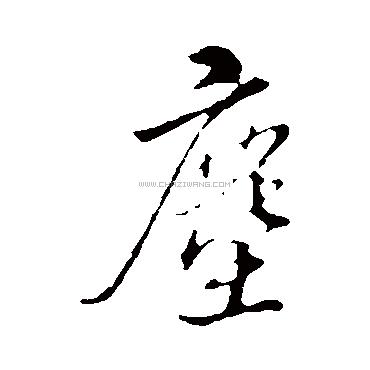 塵
WWW.CHAZIWANG.COM